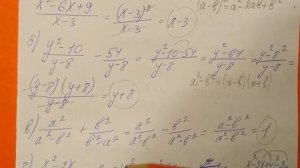 x²-6x+9 / x-3 = (x-3)² / x-3 = x-3
(a-b)² = a²-2ab+b²
б) y²-10 / y-8 - 54 / y-8 = y²-10-54 / y-8 = y²-64 / y-8 = y²-8² / y-8
= (y-8)(y+8) / y-8 = y+8
a²-b² = (a-b)(a+b)
в) a² / a²-b² + b² / b²-a² = a² / a²-b² - b² / a²-b² = a²-b² / a²-b² = 1